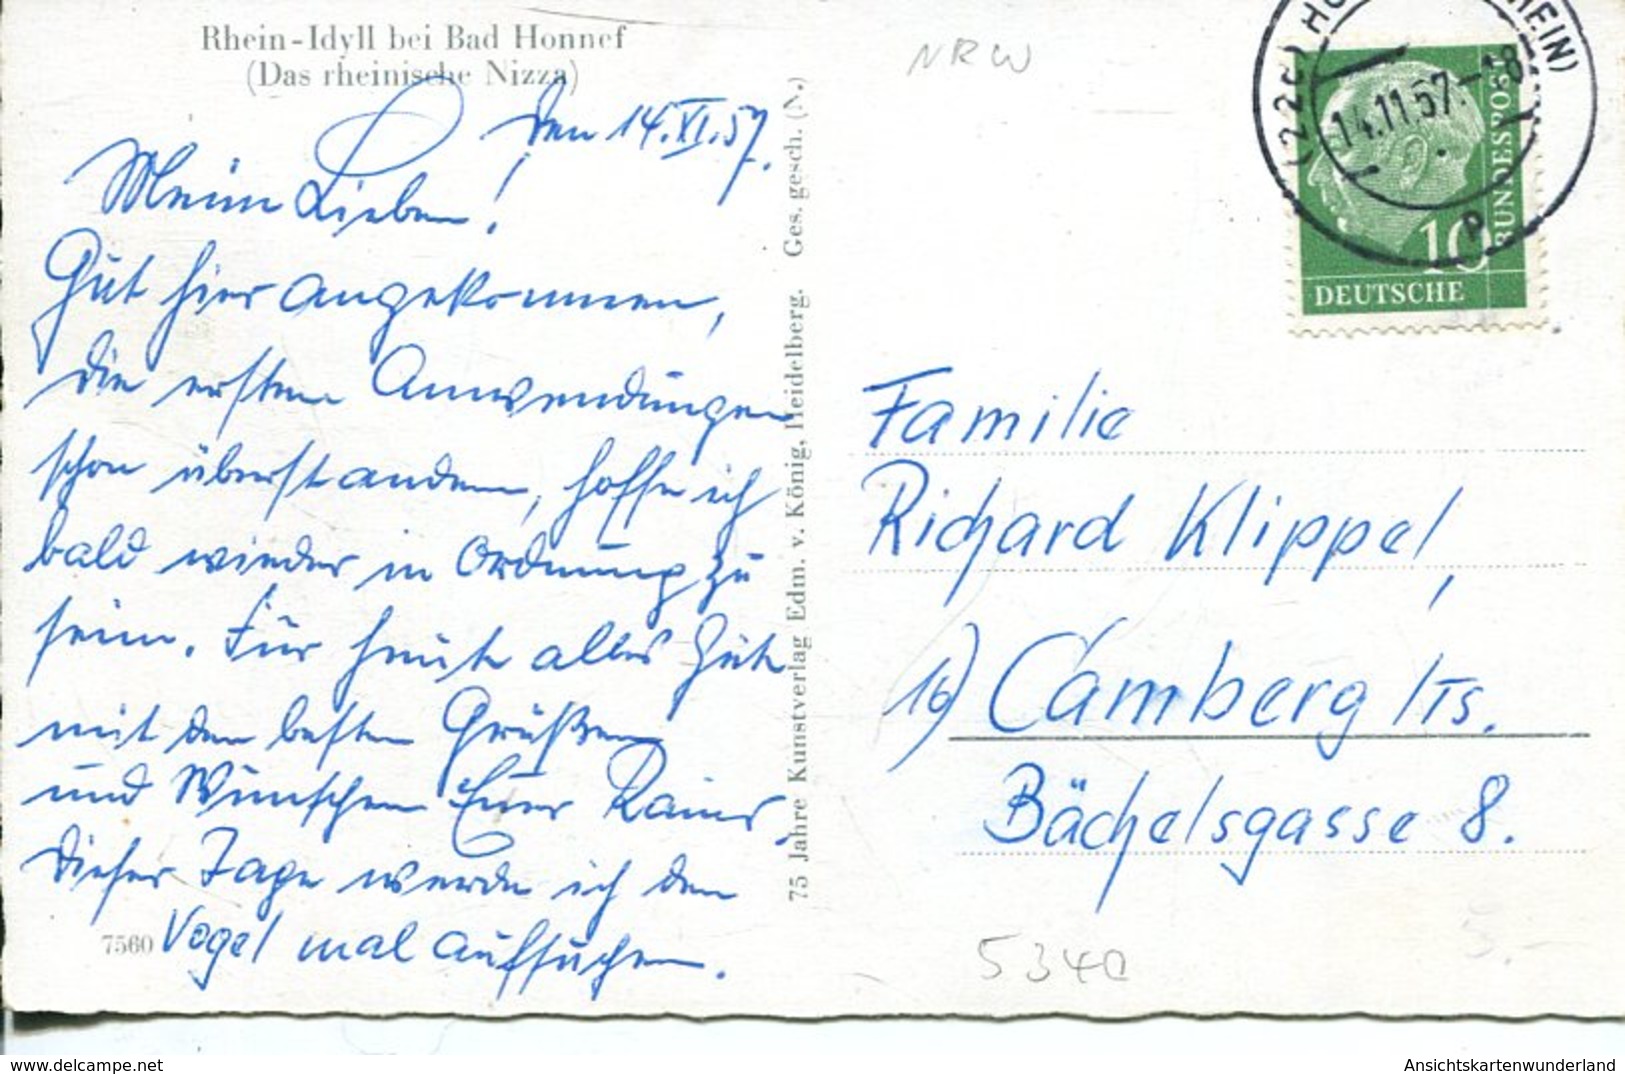 Rhein-Idyll bei Bad Honnef
(Das rheinische Nizza)
den 14.XI.57.
Meine Lieben!
Gut hier angekommen,
die ersten Anwendungen
schon überstanden, hoffe ich
bald wieder in Ordnung zu
sein. Für heute alles Gute
mit den besten Grüßen
und Wünschen Euer Rainer.
Dieser Tage werde ich den
Vogel mal aufsuchen.
7560
75 Jahre Kunstverlag Edm. v. König, Heidelberg. Ges. gesch. (N.)
NRW
(22c) HO RHEIN)
14.11.57.-18
P
10
BUNDESPOST
DEUTSCHE
Familie
Richard Klippel,
16) Camberg /Ts.
Bächelsgasse 8.
5340
3.-
delcampe.net
Ansichtskartenwunderland